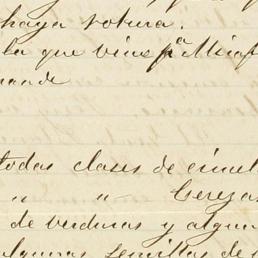 haya rotura.
la que vine pª Meja
mande
todas clases de ciruel
" " Cerezas
de verduras y algun
algunas semillas de